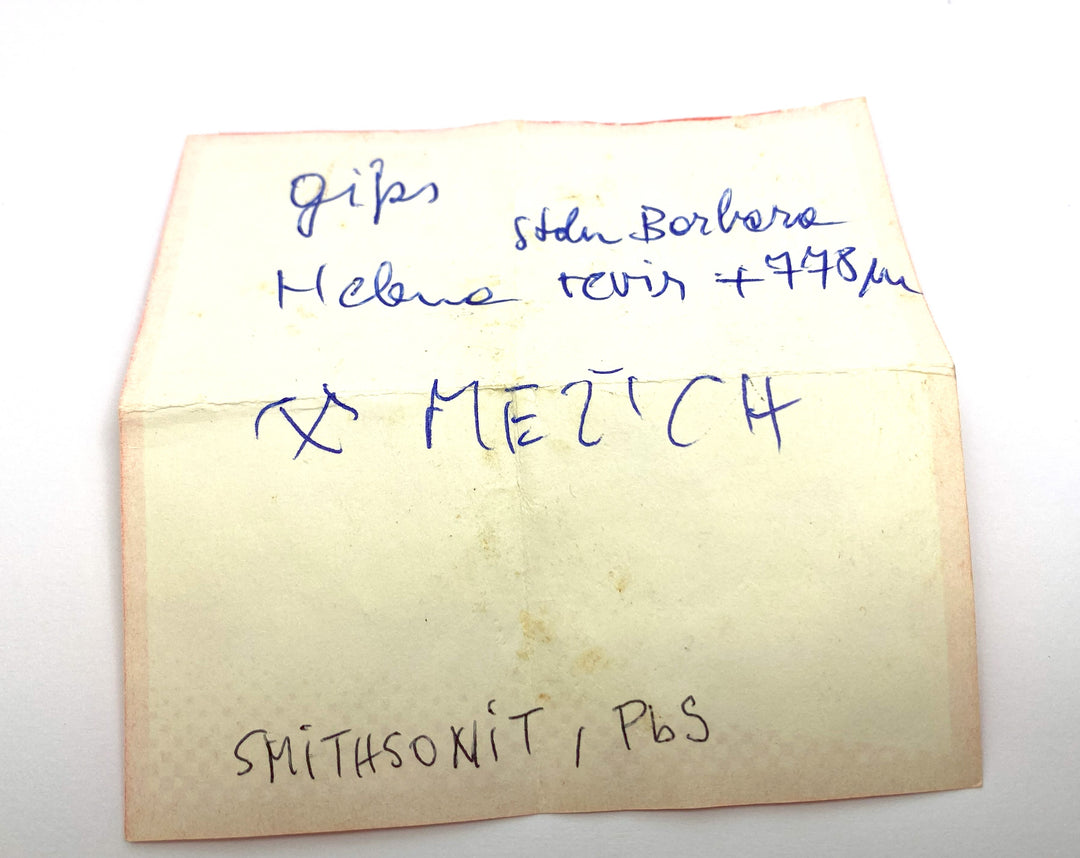 gips
štoln Barbara
Helena revir +778m
⚒ MEŽICH
SMiTHSONiT, PbS